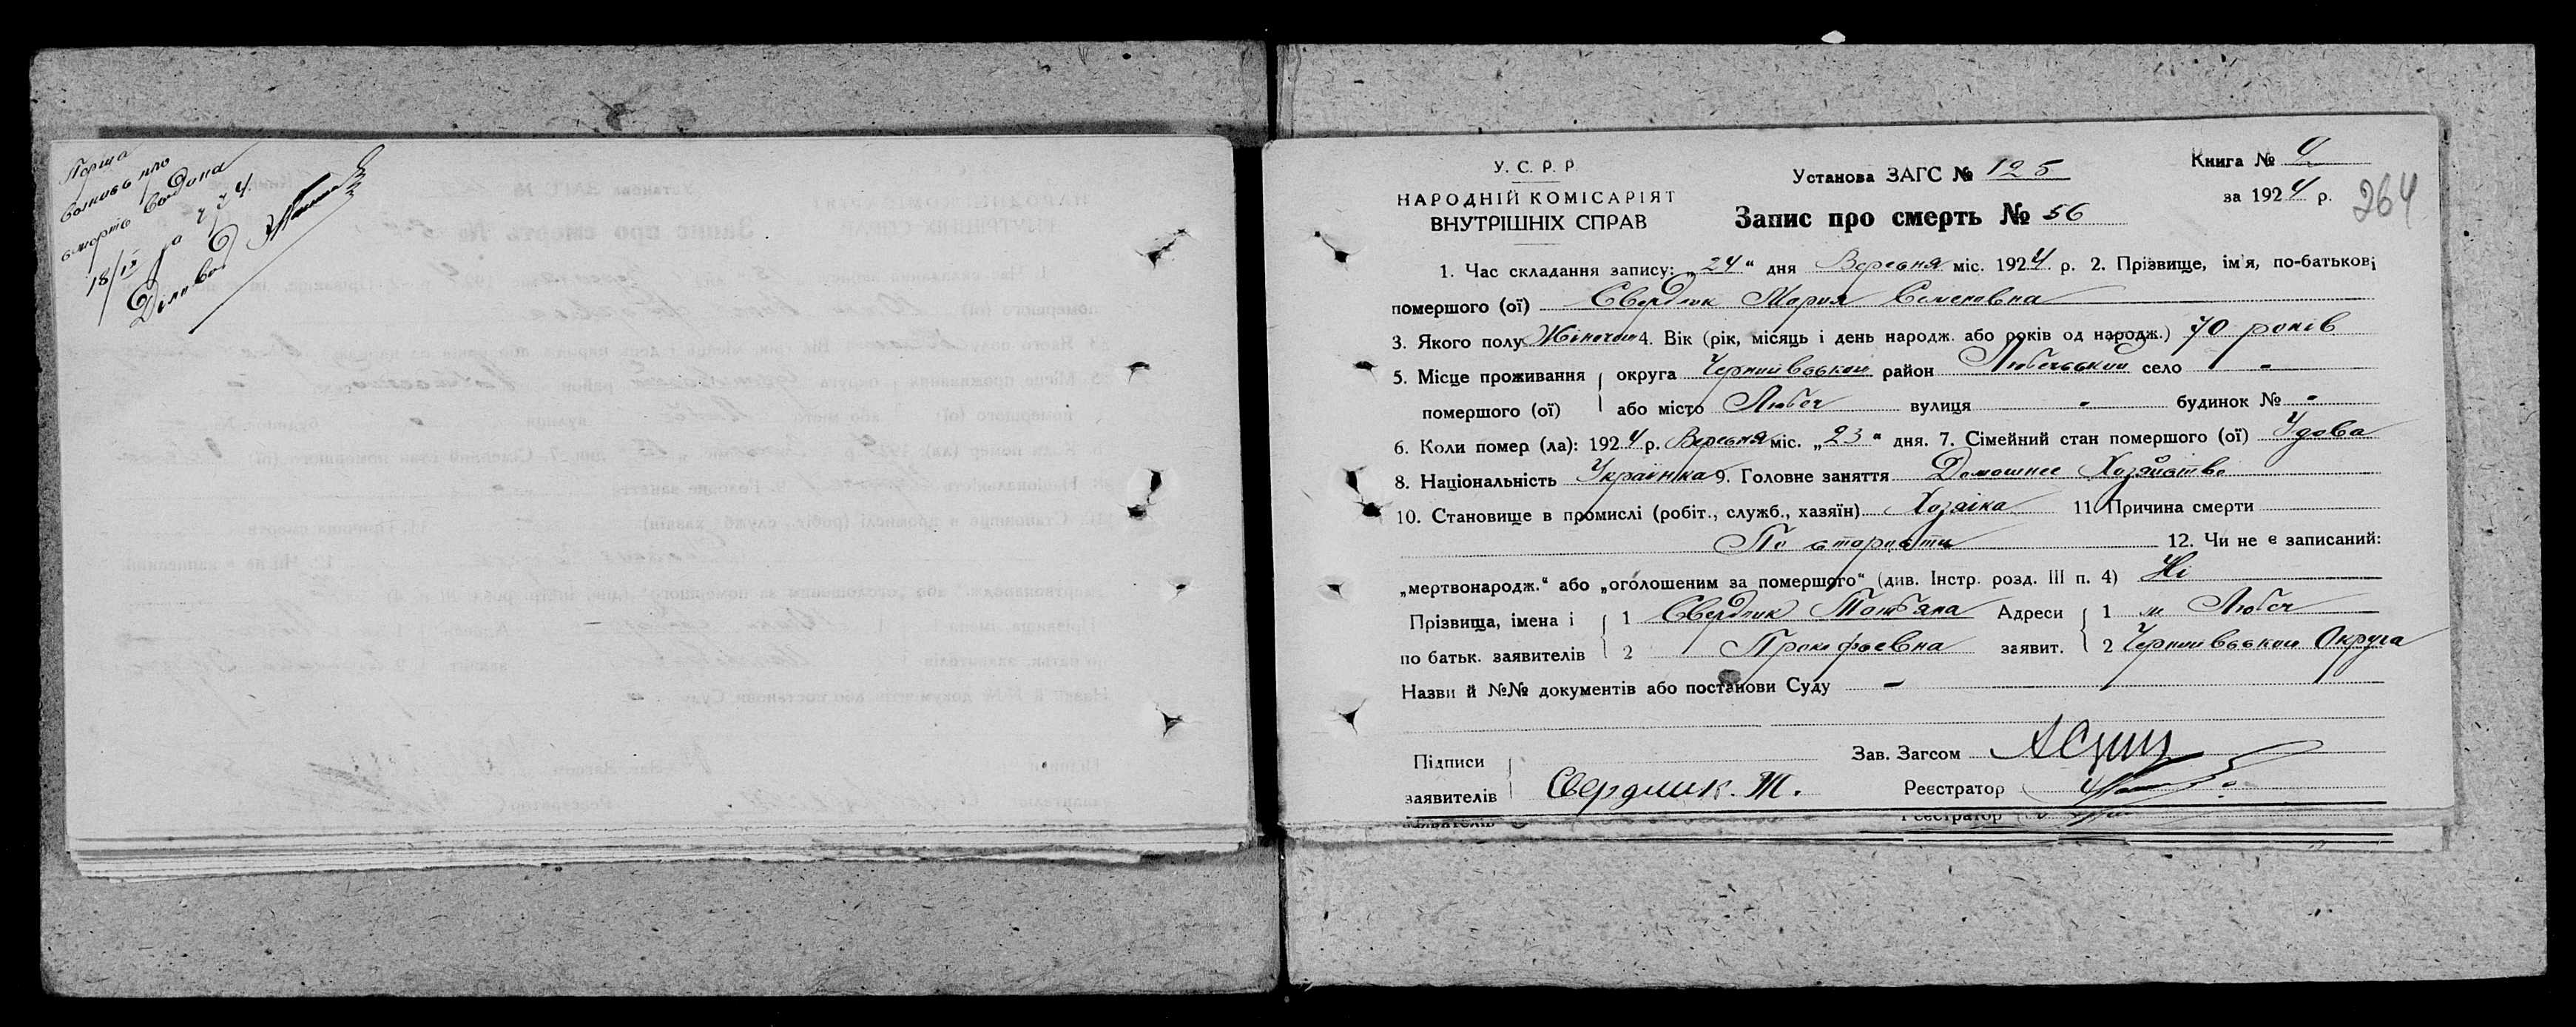 Перша
випись про
смерть видана
18/IX за 774
Діловод
У. С. Р. Р.
НАРОДНІЙ КОМІСАРІЯТ
ВНУТРІШНІХ СПРАВ
Установа ЗАГС № 125
Запис про смерть № 56
Книга № 4
за 1924 р.
264
1. Час складання запису: „24“ дня Вересня міс. 1924 р. 2. Прізвище, ім'я, по-батькові
помершого (ої) Свердлик Мария Семеновна
3. Якого полу Жіночои 4. Вік (рік, місяць і день народж. або років од народж.) 70 років
5. Місце проживання округа Чернигівськой район Любечьский село -
помершого (ої) або місто Любеч вулиця - будинок № -
6. Коли помер (ла): 1924 р. Вересня міс. „23“ дня. 7. Сімейний стан помершого (ої) Удова
8. Національність Українка 9. Головне заняття Домошнее Хозяйство
10. Становище в промислі (робіт., служб., хазяїн) Хозяіка 11 Причина смерти
По старости 12. Чи не є записаний:
„мертвонародж.“ або „оголошеним за помершого“ (див. Інстр. розд. III п. 4) Ні
Прізвища, імена і 1 Свердлик Татьяна Адреси 1 м Любеч
по батьк. заявителів 2 Прокофьевна заявит. 2 Чернигівськой Округа
Назви й №№ документів або постанови Суду -
Підписи Зав. Загсом
заявителів Свердлик. Т. Реєстратор
заявителів Реєстратор